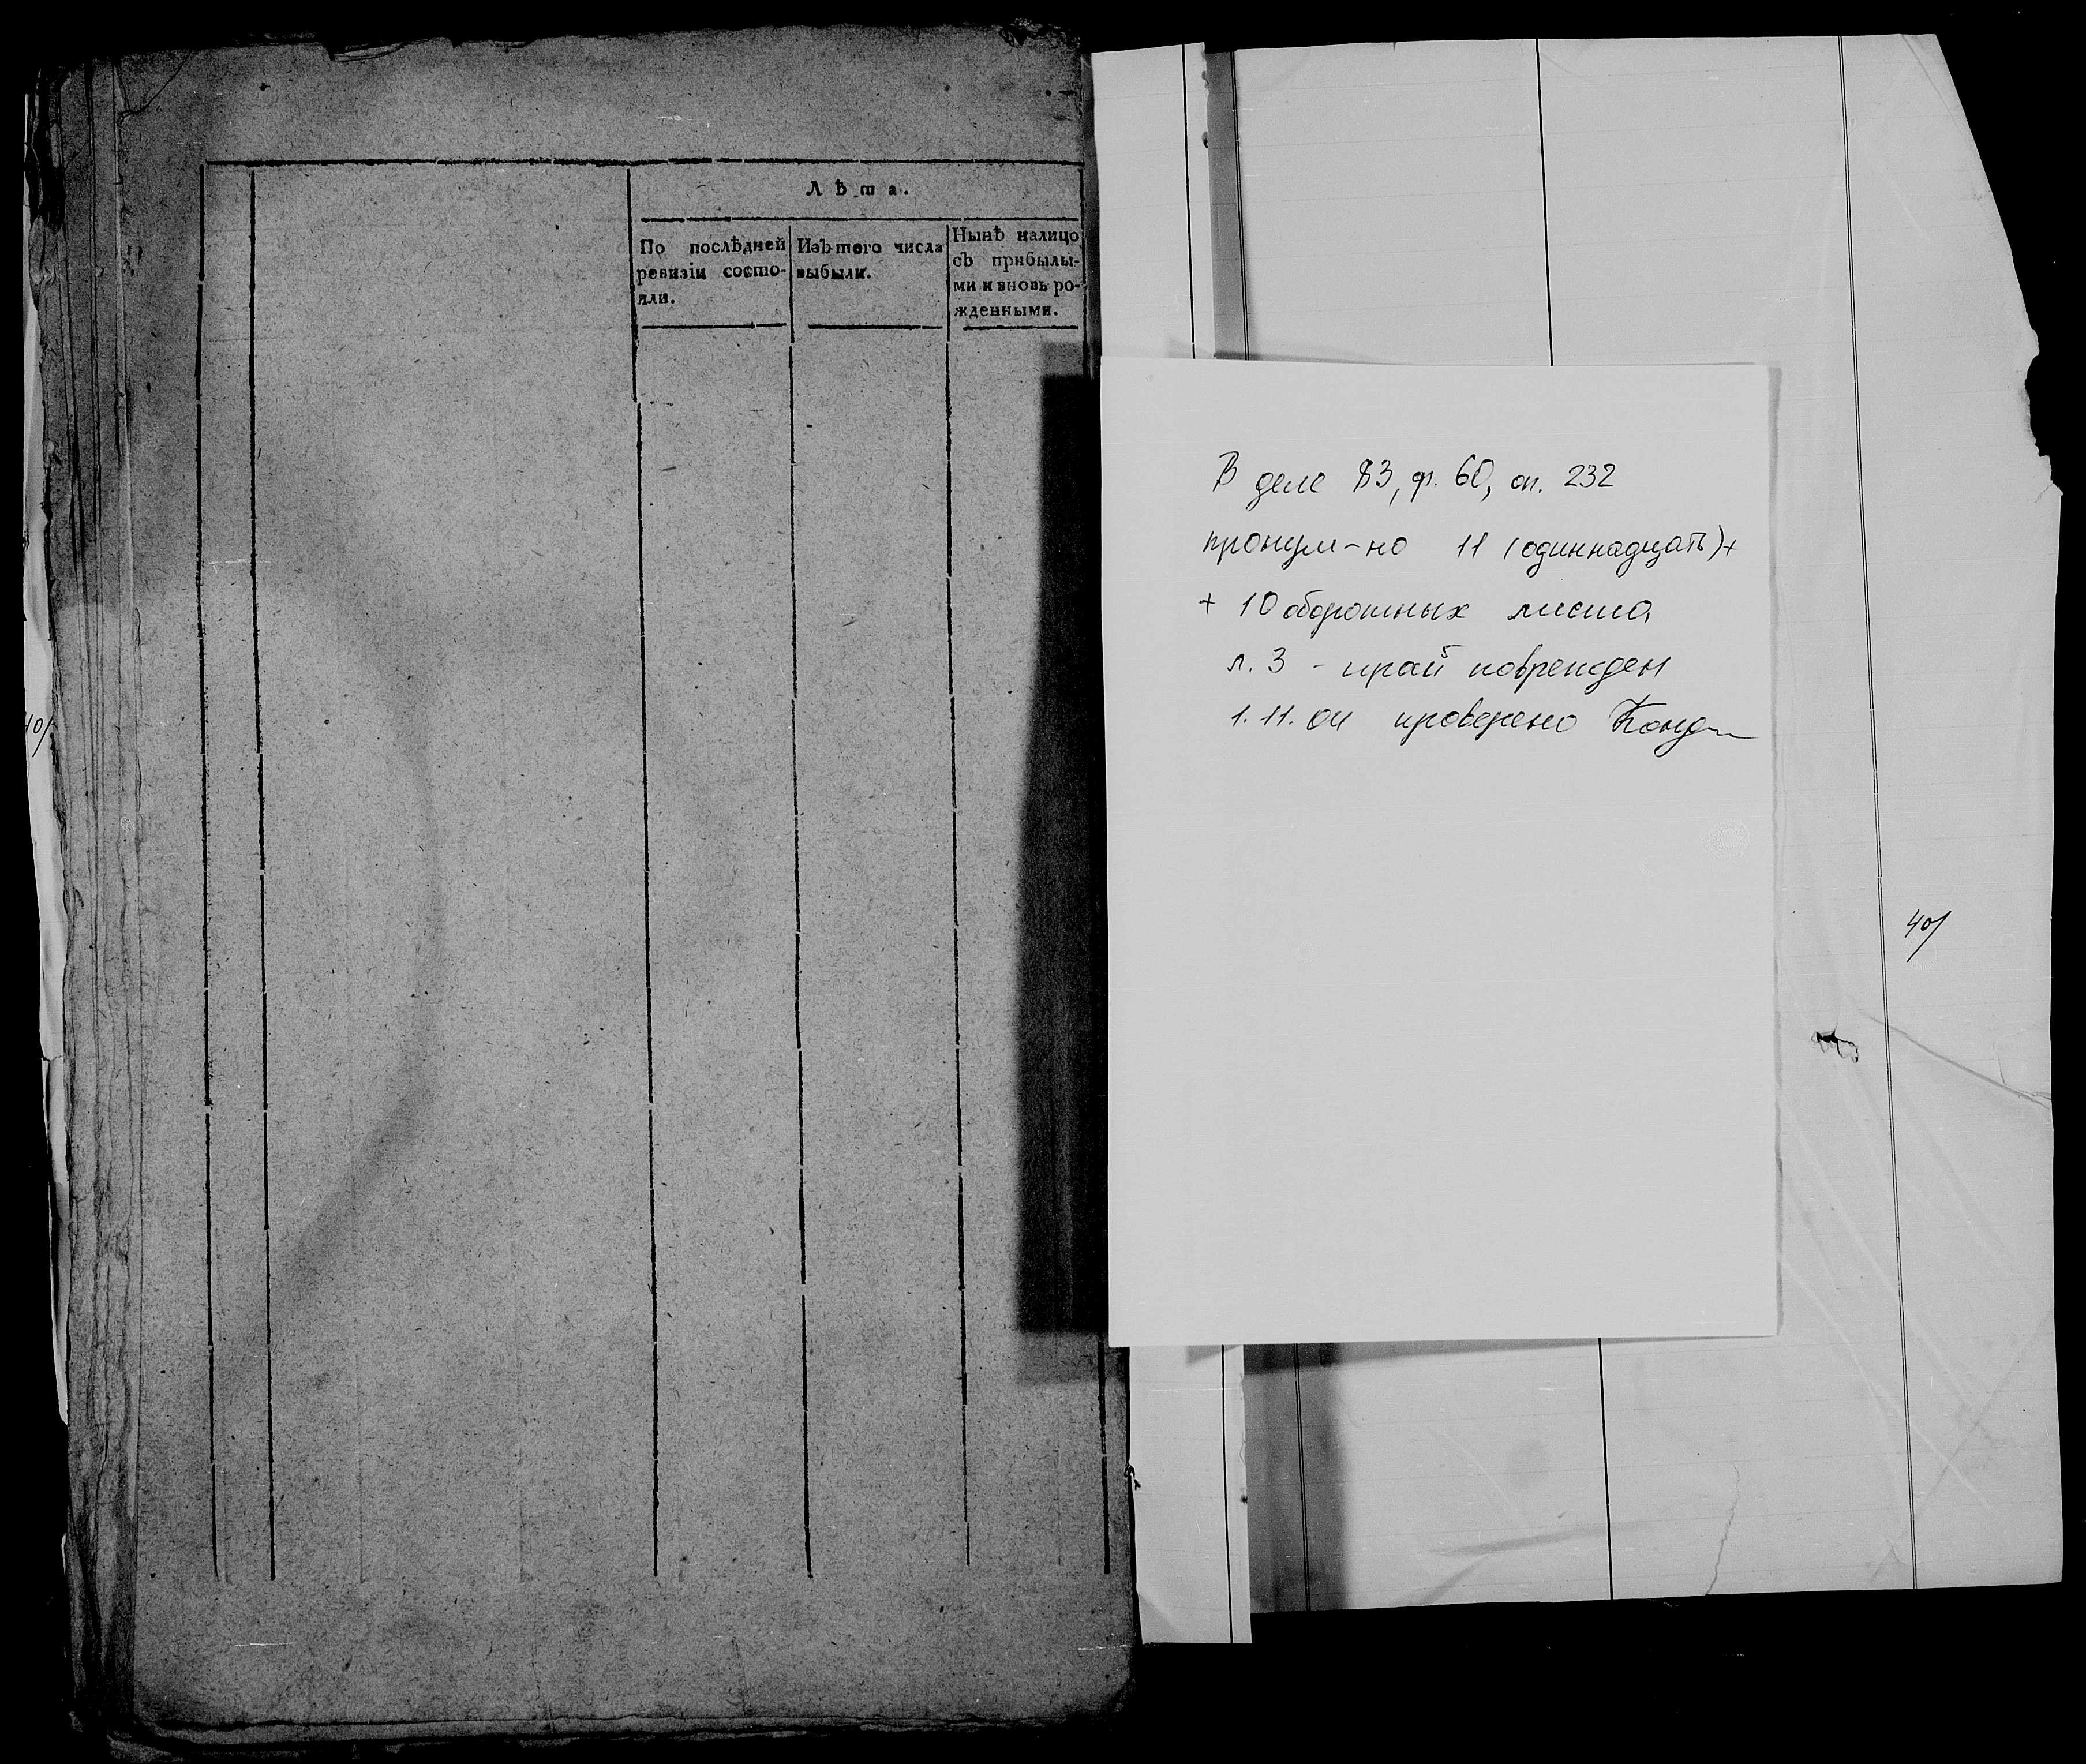 Лѣта.
По послѣдней
ревизіи состо-
яли.
Изъ того числа
выбыли.
Нынѣ налицо
съ прибылы-
ми и вновь ро-
жденными.
В деле 83, ф. 60, оп. 232
пронум-но 11 (одиннадцать) +
+ 10 оборотных листа
л. 3 - край поврежден
1.11.04 проверено
40/